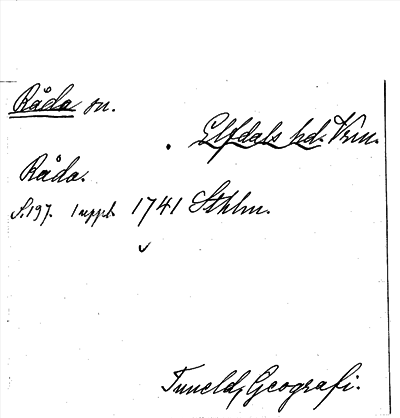 Råda sn.
Elfdals hd. Vrm.
Råda.
S. 197. 1 uppl. 1741 Sthlm.
Tuneld, Geografi.